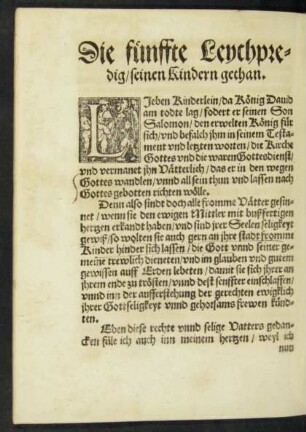 Die fünffte Leychpre-
dig/seinen Kindern gethan.
LJeben Kinderlein/da König Dauid
am todte lag/fodert er seinen Son
Salomon/den erwelten König für
sich/vnd befalch jhm in seinem Testa-
ment vnd letzten worten/die Kirche
Gottes vnd die waren Gottesdienst/
vnd vermanet jhn Vätterlich/das er in den wegen
Gottes wandlen/vnnd all sein thun vnd lassen nach
Gottes gebotten richten wölle.
Denn also sindt doch alle fromme Vätter gesin-
net/wenn sie den ewigen Mittler mit bußfertigen
hertzen erkandt haben/vnd sind jrer Seelen seligkeyt
gewiß/so wolten sie auch gern an jhre stadt fromme
Kinder hinder sich lassen/die Gott vnnd seiner ge-
meine trewlich dieneten/vnd im glauben vnd gutem
gewissen auff Erden lebeten/damit sie sich jhrer an
jhrem ende zu trösten/vnnd dest senffter einschlaffen/
vnnd inn der aufferstehung der gerechten ewigklich
jhrer Gottseligkeyt vnnd gehorsams frewen künd-
ten.
Eben diese rechte vnnd selige Vatters gedan-
cken füle ich auch inn meinem hertzen/weyl ich
nun